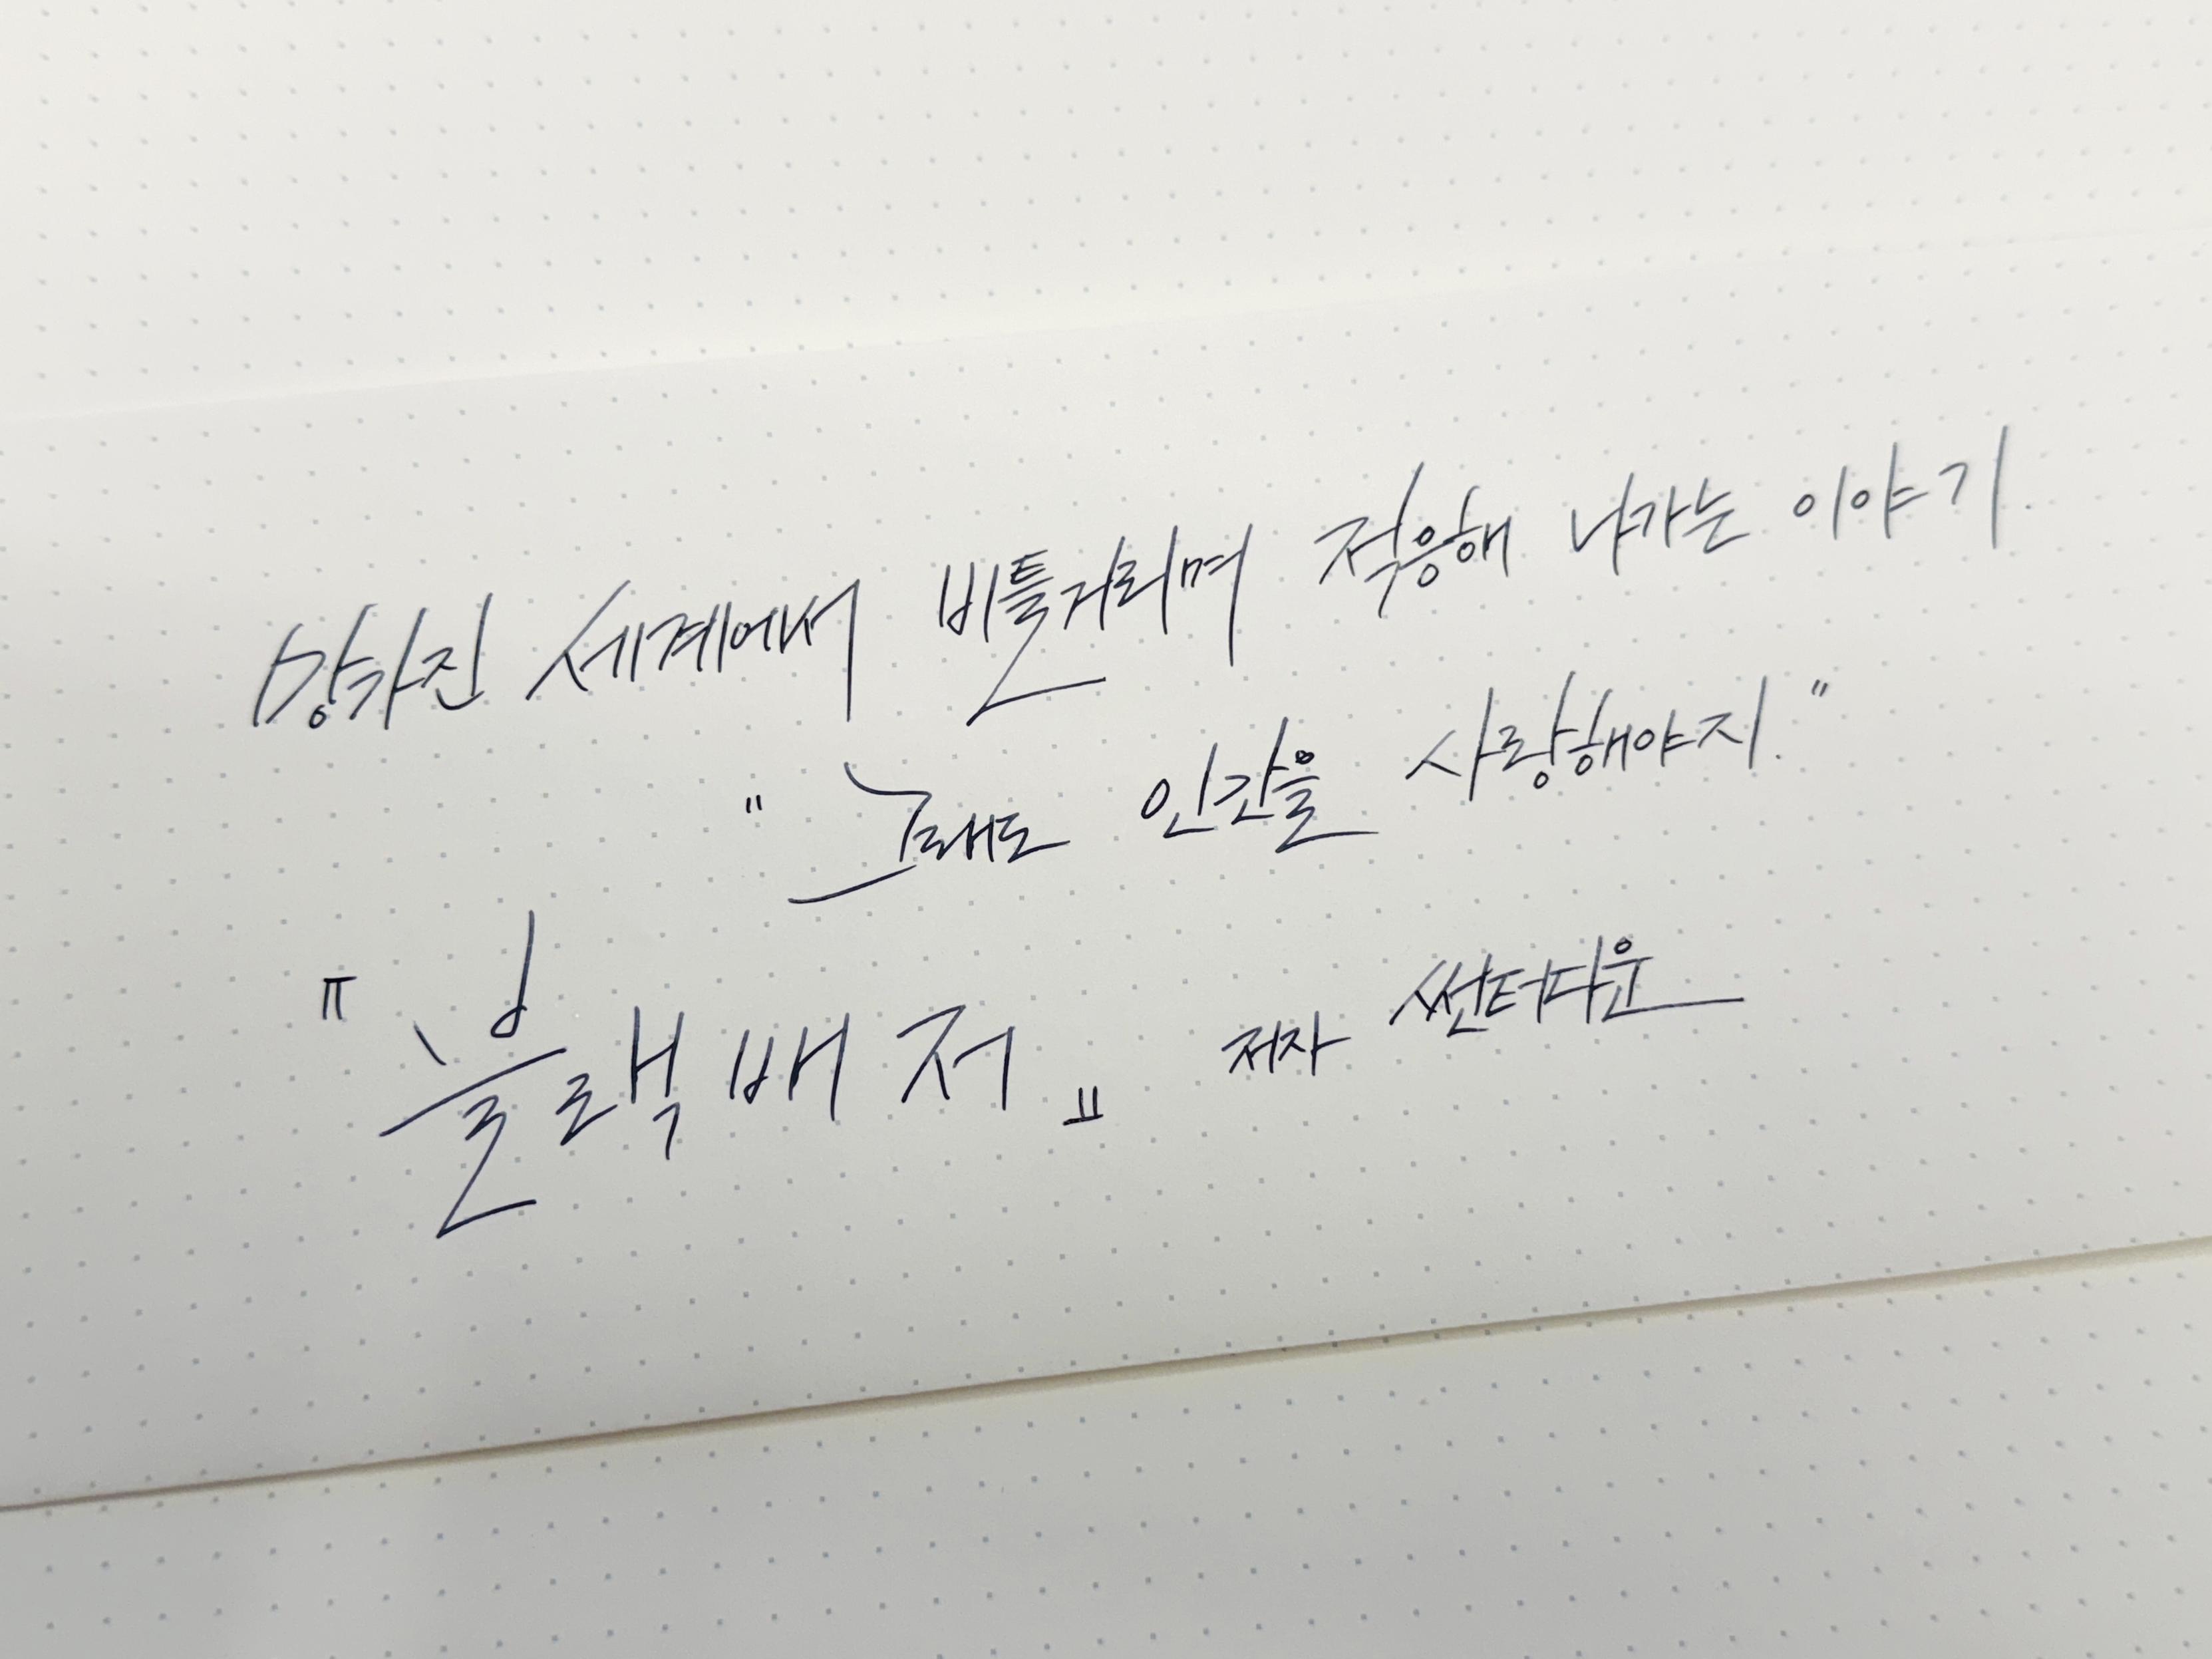 망가진 세계에서 비틀거리며 적응해 나가는 이야기.
" 그래도 인간을 사랑해야지. "
『 블랙 배 저 』 저자 썬더다운